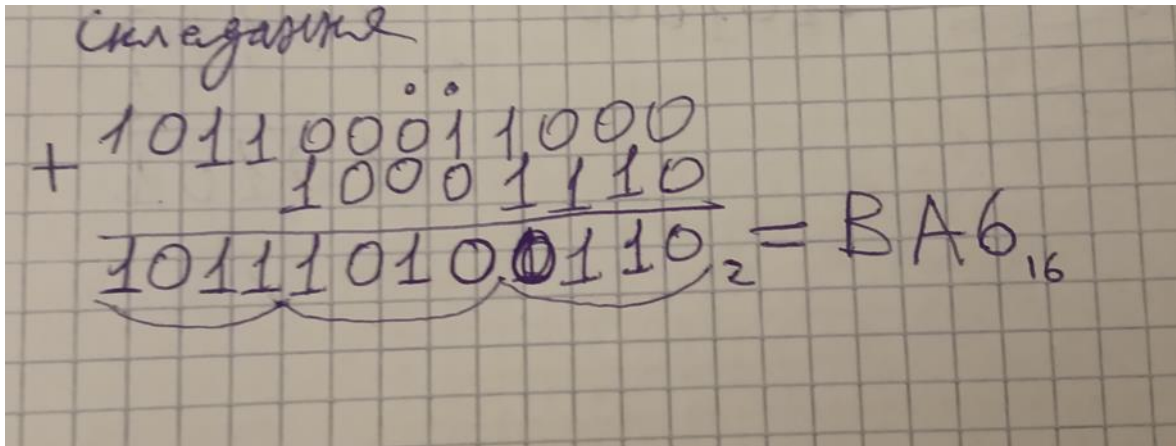 складання
+ 101100011000
10001110
101110100110₂ = BA6₁₆